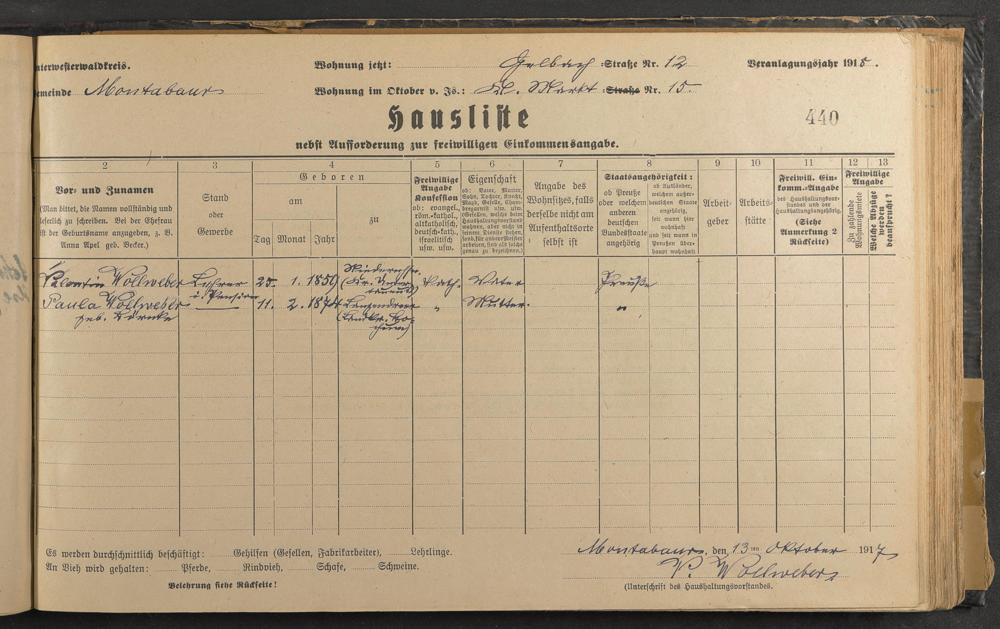 nterwesterwaldkreis.
Wohnung jetzt: Gelbach Straße Nr. 12
Veranlagungsjahr 1918.
emeinde Montabaur
Wohnung im Oktober v. Js.: Kl. Markt Straße Nr. 15.
Hausliste
440
nebst Aufforderung zur freiwilligen Einkommensangabe.
2 3 4 5 6 7 8 9 10 11 12 13
Vor- und Zunamen
(Man bittet, die Namen vollständig und
leserlich zu schreiben. Bei der Ehefrau
ist der Geburtsname anzugeben, z. B.
Anna Apel geb. Becker.)
Stand
oder
Gewerbe
Geboren
am
zu
Tag Monat Jahr
Freiwillige
Angabe
Konfession
ob: evangel.,
röm.-kathol.,
altkatholisch,
deutsch-kath.,
israelitisch
usw. usw.
Eigenschaft
ob: Vater, Mutter,
Sohn, Tochter, Knecht,
Magd, Geselle, Cham-
bregarnist usw. usw.
Angabe des
Wohnsitzes, falls
derselbe nicht am
Aufenthaltsorte
selbst ist
Staatsangehörigkeit:
ob Preuße
oder welchem
anderen
deutschen
Bundesstaate
angehörig
ob Ausländer,
welchem außer-
deutschen Staate
angehörig,
seit wann hier
wohnhaft
und seit wann in
Preußen über-
haupt wohnhaft
Arbeit-
geber
Arbeits-
stätte
Freiwill. Ein-
komm.-Angabe
des Haushaltungsvor-
standes und der
Haushaltungsangehörig.
(Siehe
Anmerkung 2
Rückseite)
Freiwillige
Angabe
Zu zahlende
Wohnungsmiete
Welche Abzüge
werden
beansprucht?
Valentin Wollweber Lehrer 25. 1. 1859 Kath. Vater Preuße
i. Pension
Paula Wollweber 11. 2. 1874 " Mutter. "
geb. Börncke
Es werden durchschnittlich beschäftigt: Gehilfen (Gesellen, Fabrikarbeiter), Lehrlinge.
An Vieh wird gehalten: Pferde, Rindvieh, Schafe, Schweine.
Belehrung siehe Rückseite!
Montabaur, den 13ten Oktober 1917
V. Wollweber
(Unterschrift des Haushaltungsvorstandes.